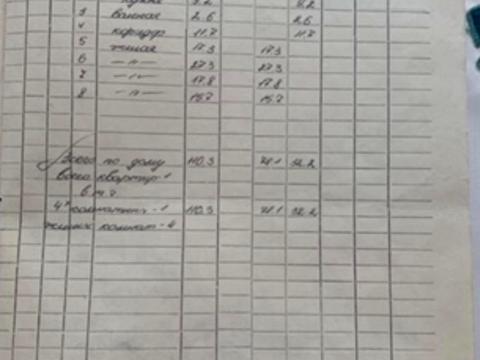 3 ванная 2.6 2.6
4 коридор 11.7 11.7
5 жилая 17.3 17.3
6 —"— 27.3 27.3
7 —"— 17.8 17.8
8 —"— 15.7 15.7
Всего по дому 110.3 78.1 32.2
Всего квартир - 1
в т.ч
4х комнатных - 1 110.3 78.1 32.2
жилых комнат - 4